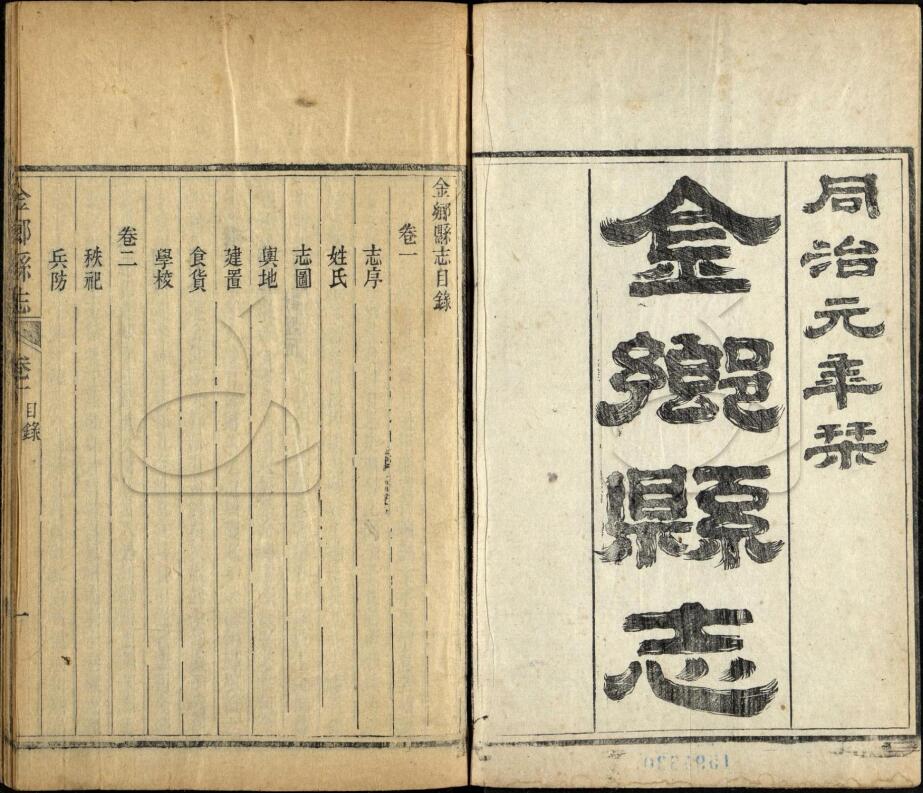 同治元年栞
金鄉縣志
金鄉縣志目錄
卷一
志序
姓氏
志圖
輿地
建置
食貨
學校
卷二
秩祀
兵防
金鄉縣志 卷一 目錄 一